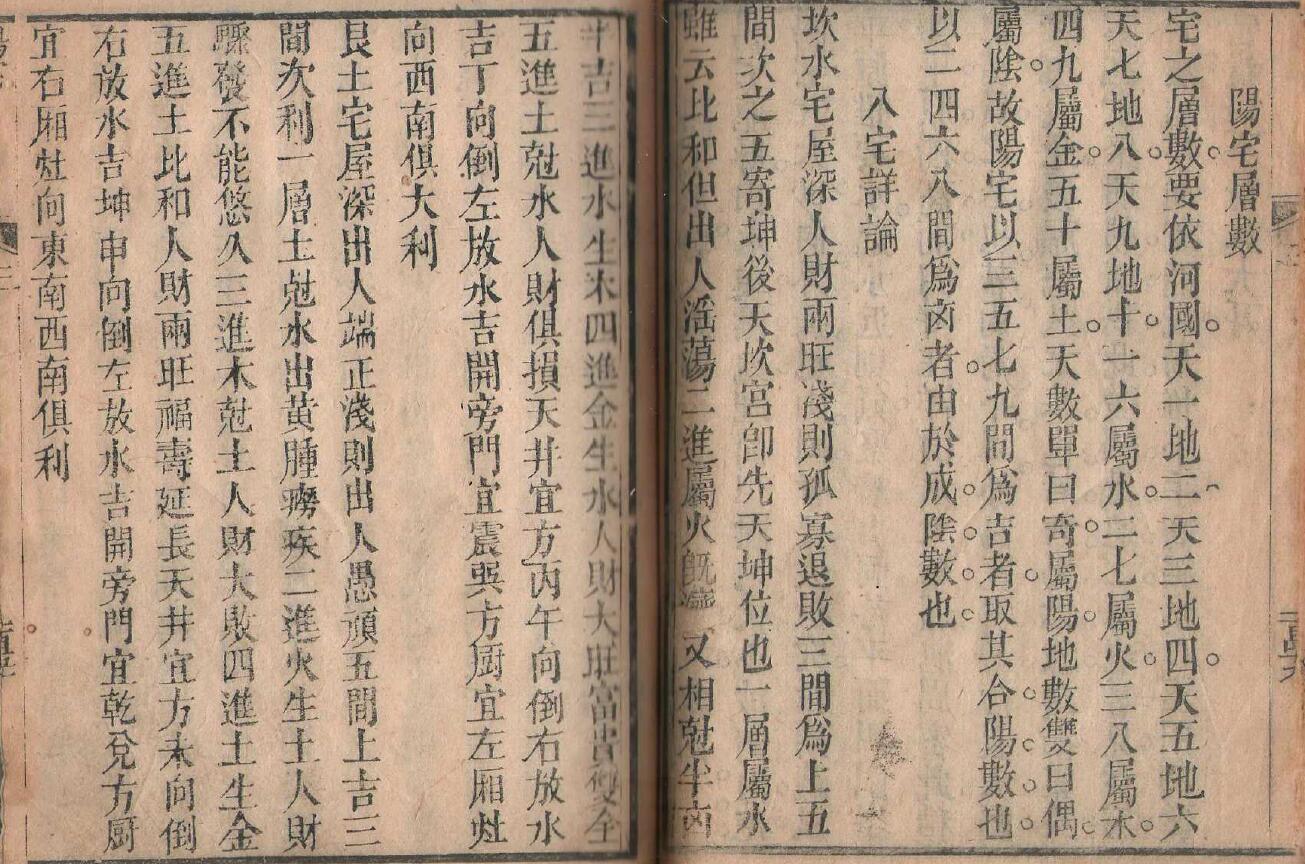 陽宅層數
宅之層數要依河國天一地二天三地四天五地六
天七地八天九地十一六屬水二七屬火三八屬木
四九屬金五十屬土天數單曰奇屬陽地數雙曰偶
屬陰故陽宅以三五七九間爲吉者取其合陽數也
以二四六八間爲凶者由於成陰數也
八宅詳論
坎水宅屋深人財兩旺淺則孤寡退敗三間爲上五
間次之五寄坤後天坎宮卽先天坤位也一層屬水
雖云比和但出人滛蕩二進屬火旣濟又相尅半凶
半吉三進水生木四進金生水人財大旺富貴雙全
五進土尅水人財俱損天井宜方丙午向倒右放水
吉丁向倒左放水吉開旁門宜震巽方厨宜左廂灶
向西南俱大利
艮土宅屋深出人端正淺則出人愚頑五間上吉三
間次利一層土尅水出黃腫癆疾二進火生土人財
驟發不能悠久三進木尅土人財大敗四進土生金
五進土比和人財兩旺福壽延長天井宜方未向倒
右放水吉坤申向倒左放水吉開旁門宜乾兌方厨
宜右廂灶向東南西南俱利